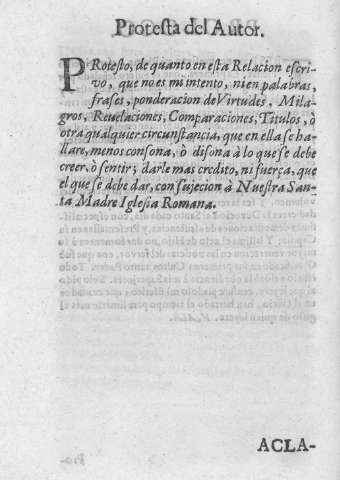 Protesta del Autor.
PRotesto, de quanto en esta Relacion escri-
vo, que no es mi intento, ni en palabras,
frases, ponderacion de Virtudes, Mila-
gros, Reuelaciones, Comparaciones, Titulos, ò
otra qualquier circunstancia, que en ella se ha-
llare, menos consona, ò disona à lo que se debe
creer, ò sentir; darle mas credito, ni fuerça, que
el que se debe dar, con sujecion à Nuestra San-
ta Madre Iglesia Romana.
ACLA-